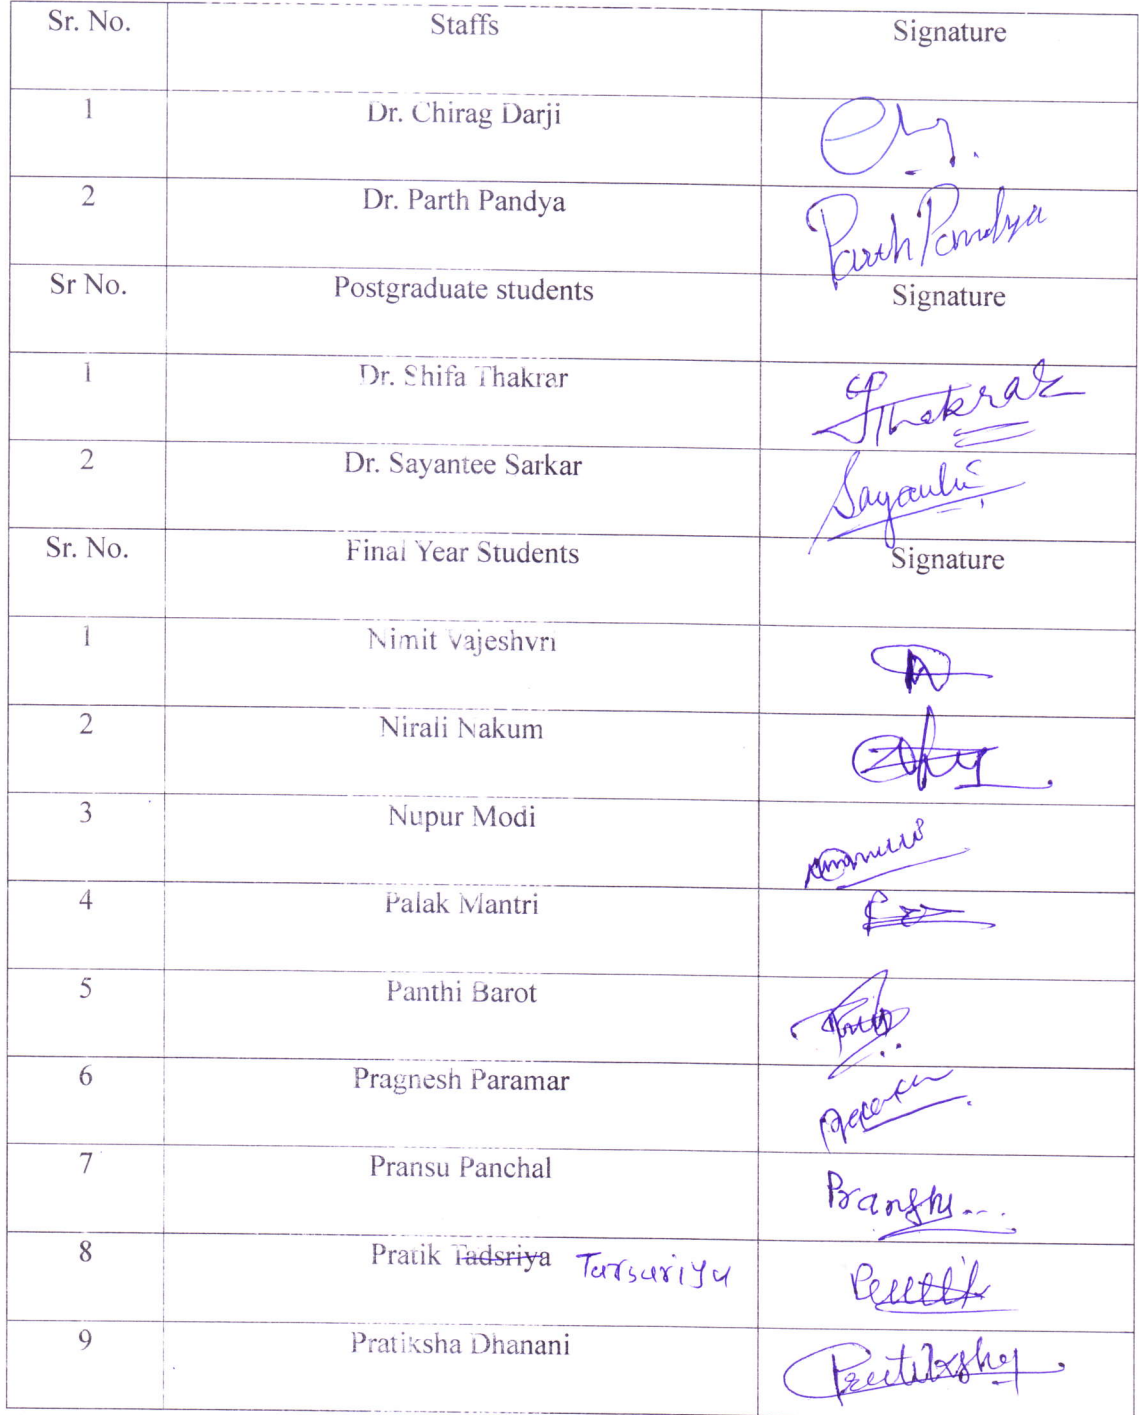 Sr. No. Staffs Signature
1 Dr. Chirag Darji
2 Dr. Parth Pandya Parth Pandya
Sr No. Postgraduate students Signature
1 Dr. Shifa Thakrar SThakrar
2 Dr. Sayantee Sarkar Sayantee
Sr. No. Final Year Students Signature
1 Nimit Vajeshvri
2 Nirali Nakum
3 Nupur Modi
4 Palak Mantri
5 Panthi Barot
6 Pragnesh Paramar
7 Pransu Panchal Pranshu...
8 Pratik Tadsriya Tarsariya Pratik
9 Pratiksha Dhanani Pratiksha